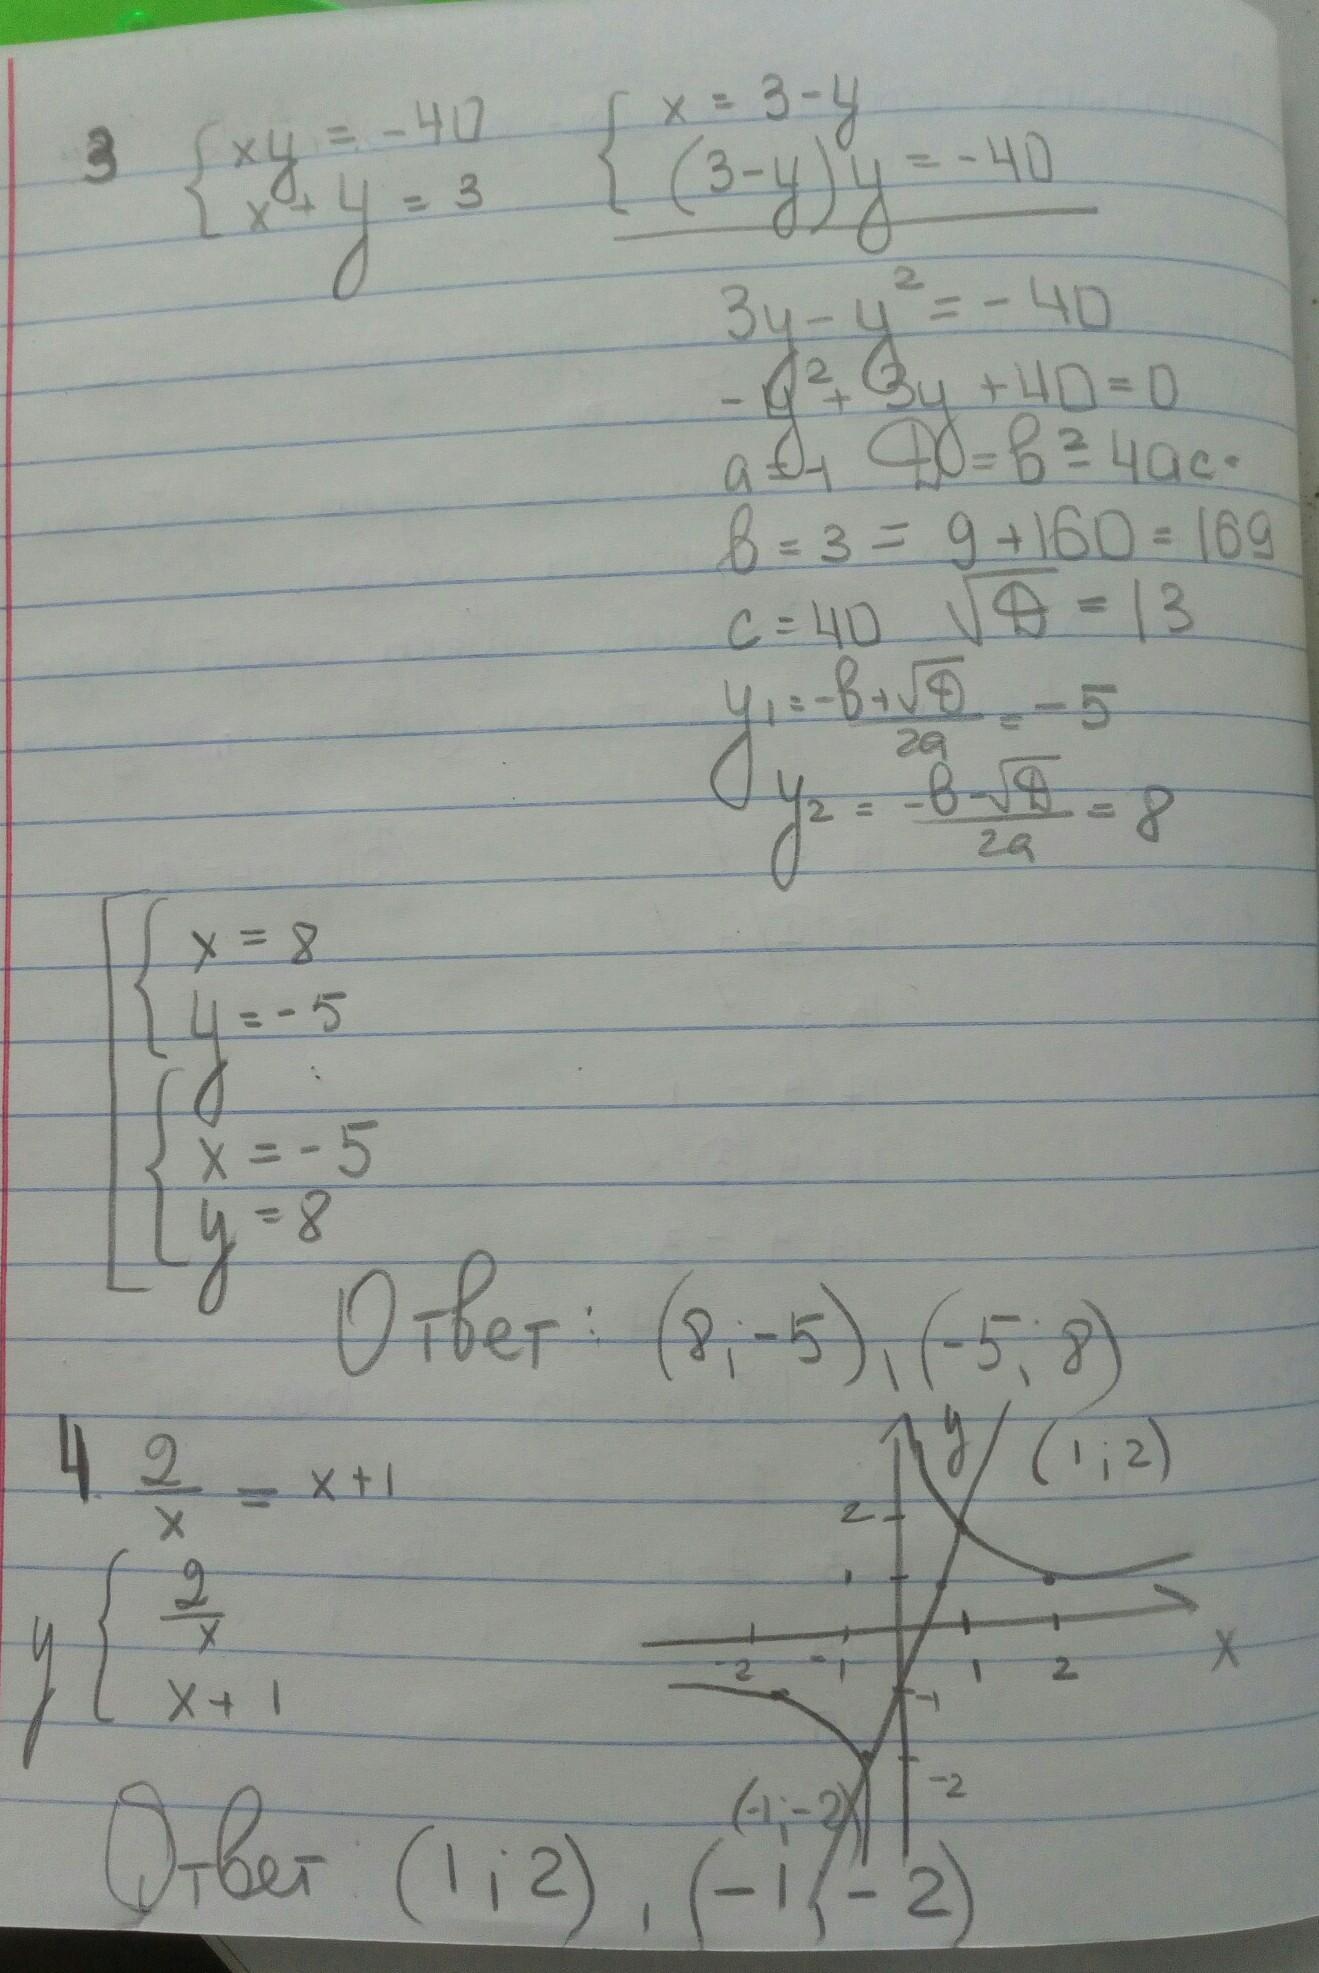 3 { xy = -40
x + y = 3
{ x = 3 - y
(3 - y) y = -40
3y - y² = -40
-y² + 3y + 40 = 0
a = -1 D = b² - 4ac =
b = 3 = 9 + 160 = 169
c = 40 √D = 13
y₁ = (-b + √D) / 2a = -5
y₂ = (-b - √D) / 2a = 8
[ { x = 8
y = -5
{ x = -5
y = 8
Ответ: (8; -5), (-5; 8)
4. 2/x = x + 1
y { 2/x
x + 1
y (1; 2)
2
1
-2 -1 1 2 x
-1
-2
(-1; -2)
Ответ (1; 2), (-1; -2)